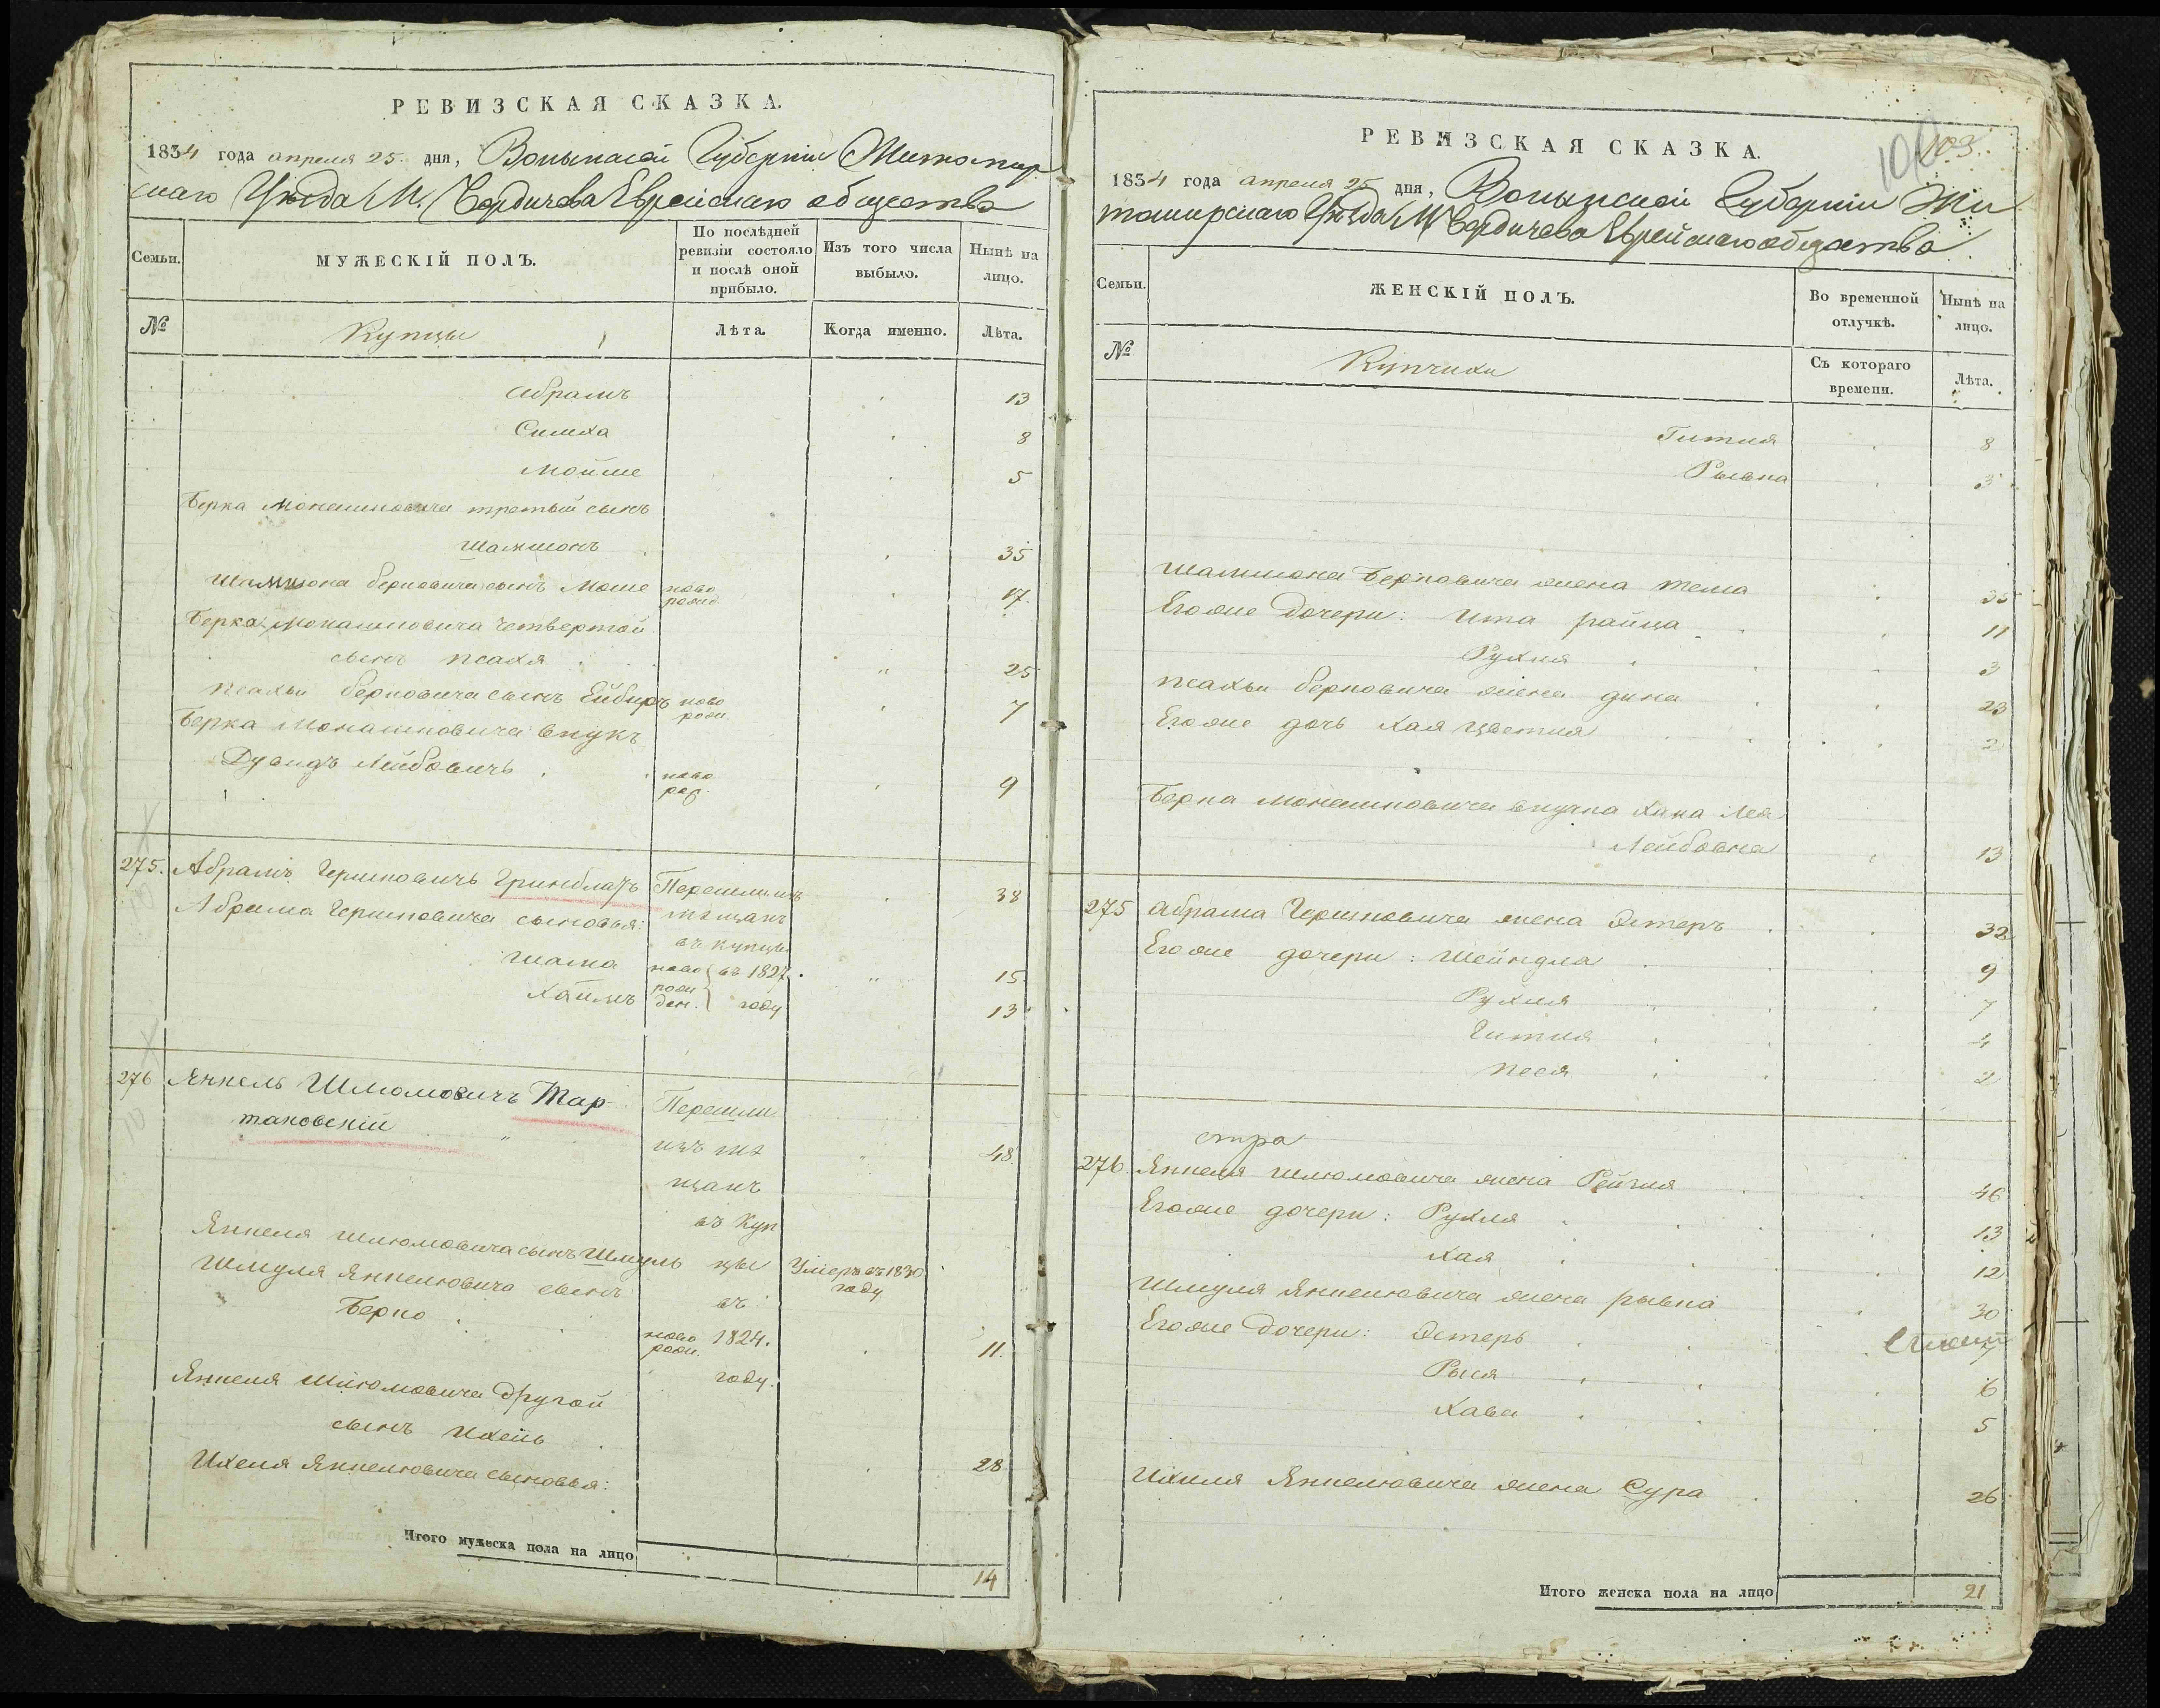 РЕВИЗСКАЯ СКАЗКА.
1834 года апреля 25 дня, Волынской Губернии Житомир
скаго Уѣзда М. Бердичева Еврейскаго общества
Семьи.
МУЖЕСКІЙ ПОЛЪ.
По послѣдней ревизіи состояло и послѣ оной прибыло.
Изъ того числа выбыло.
Нынѣ на лицо.
№
Купцы
Лѣта.
Когда именно.
Лѣта.
Абрамъ 13
Симха 8
Мойше 5
Берка Монашковича третьій сынъ
Шамшонъ 35
Шамшона Берковича сынъ Моше ново рожд. 17.
Берка Монашковича четвертой
сынъ Псахя 25
Псахьи Берковича сынъ ново рож. 7
Берка Монашковича внукъ
Дувидъ Лейбовичъ ново рож. 9
275. Абрамъ Гершковичъ Гринблатъ Перешли изъ 38
Абрама Гершковича сыновья: мѣщанъ
въ купцы
Шама ново въ 1827. 15
Хаимъ рож ден. году 13
276 Янкель Шлюмовичъ Тар- Перешли
таковскій изъ мѣ 48.
щанъ
въ Куп
Янкеля Шлюмовича сынъ Шмуль цы Умеръ въ 1830 году
Шмуля Янкелювича сынъ въ
Берко ново рож. 1824. 11.
году.
Янкеля Шлюмовича другой
сынъ Ихель 28
Ихеля Янкелювича сыновья:
Итого мужеска пола на лицо 14
102
103
РЕВИЗСКАЯ СКАЗКА.
1834 года апреля 25 дня, Волынской Губернии Жи
томирскаго Уѣзда М Бердичева Еврейскаго общества
Семьи.
ЖЕНСКІЙ ПОЛЪ.
Во временной отлучкѣ.
Нынѣ на лицо.
№
Купчихи
Съ котораго времени.
Лѣта.
Гитля 8
Рывка 3
Шамшона Берковича жена Тема 35
Его же дочери: Ита райца 11
Рухля 3
Псахьи Берковича жена дина 23
Его же дочь Хая Цветля 2
Берка Монашковича внучка Хана Лея
Лейбовна 13
275 Абрама Гершковича жена Эстеръ 32
Его же дочери: Шейндля 9
Рухля 7
Гитля 4
Песя 2
276. Янкеля Шлюмовича жена Рейзля 46
Его же дочери: Рухля 13
Хая 12
Шмуля Янкелювича жена рывка 30
Его же дочери: Эстеръ
Рыся 6
Хава 5
Ихиля Янкелювича жена Сура 26
Итого женска пола на лицо 21